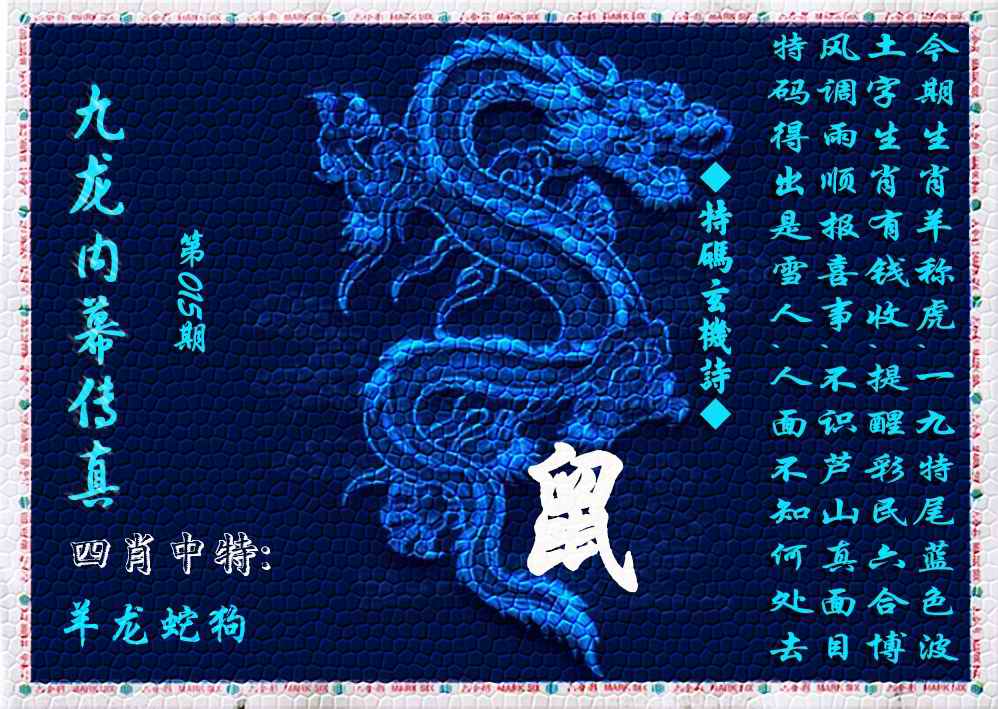 今期生肖羊称虎、一九特尾蓝色波
土字生肖有钱收、提醒彩民六合博
风调雨顺报喜事、不识芦山真面目
特码得出是雪人、人面不知何处去
◆特碼玄機詩◆
九龙内幕传真
第015期
鼠
四肖中特:
羊龙蛇狗